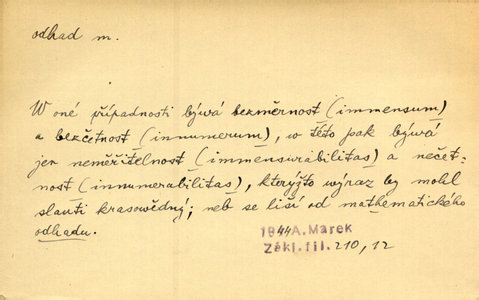 odhad m.
W oné případnosti bývá bezměrnost (immensum)
a bezčetnost (innumerum), w této pak bývá
jen neměřitelnost (immensurabilitas) a nečet-
nost (innumerabilitas), kteryžto výraz by mohl
slauti krasowědný; neb se liší od mathematického
odhadu.
1844 A. Marek
Zákl. fil. 210, 12